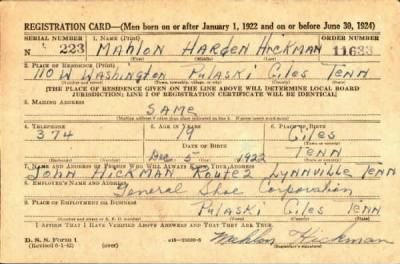 REGISTRATION CARD—(Men born on or after January 1, 1922 and on or before June 30, 1924)
SERIAL NUMBER 1. NAME (Print) ORDER NUMBER
N 223 MAHLON HARDEN HICKMAN 11633
(First) (Middle) (Last)
2. PLACE OF RESIDENCE (Print)
110 W WASHINGTON PULASKI GILES TENN
(Number and street) (Town, township, village, or city) (County) (State)
[THE PLACE OF RESIDENCE GIVEN ON THE LINE ABOVE WILL DETERMINE LOCAL BOARD
JURISDICTION; LINE 2 OF REGISTRATION CERTIFICATE WILL BE IDENTICAL]
3. MAILING ADDRESS
SAME
4. TELEPHONE 5. AGE IN YEARS 6. PLACE OF BIRTH
374 19 GILES
DATE OF BIRTH
TENN
Dec. 5 1922
(Exchange) (Number) (Mo.) (Day) (Yr.) (State or country)
7. NAME AND ADDRESS OF PERSON WHO WILL ALWAYS KNOW YOUR ADDRESS
JOHN HICKMAN ROUTE 2 LYNNVILLE TENN
8. EMPLOYER'S NAME AND ADDRESS
General Shoe Corporation
9. PLACE OF EMPLOYMENT OR BUSINESS
PULASKI GILES TENN
(Number and street or R. F. D. number) (Town) (County) (State)
I AFFIRM THAT I HAVE VERIFIED ABOVE ANSWERS AND THAT THEY ARE TRUE.
D. S. S. Form 1
(Revised 6-1-42) (over)
Mahlon Hickman
(Registrant's signature)